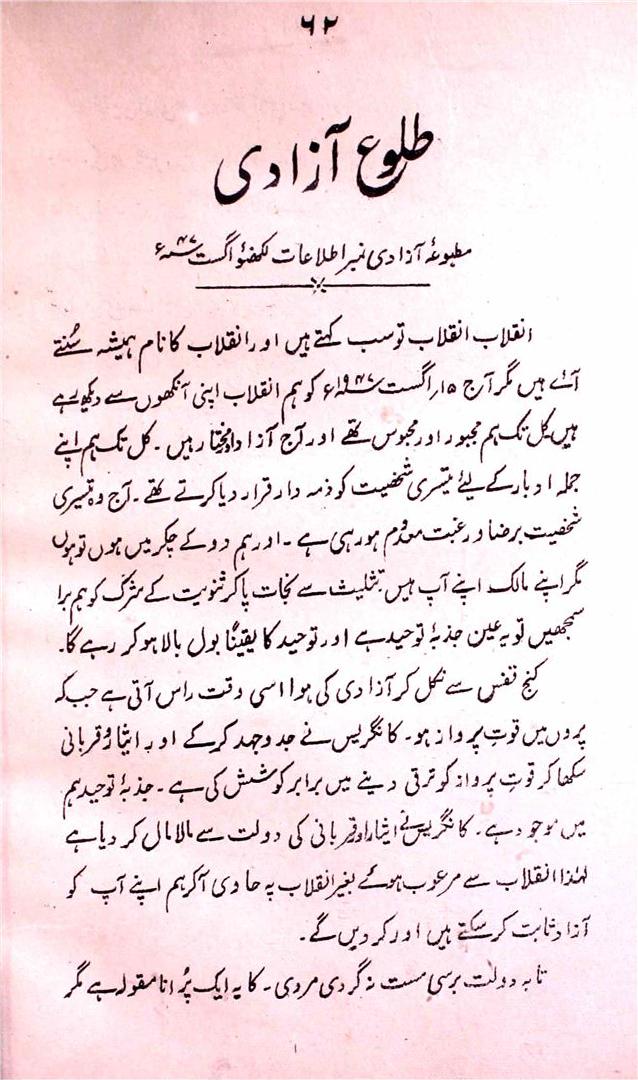 ۶۲
طلوع آزادی
مطبوعۂ آزادی نمبر اطلاعات لکھنؤ اگست ۴۷ء
انقلاب انقلاب تو سب کہتے ہیں اور انقلاب کا نام ہمیشہ سُنتے
آئے ہیں مگر آج ۱۵؍ اگست ۱۹۴۷ء کو ہم انقلاب اپنی آنکھوں سے دیکھ رہے
ہیں کل تک ہم مجبور اور محبوس تھے اور آج آزاد و مختار ہیں۔ کل تک ہم اپنے
جملہ ادبار کے لیئے تیسری شخصیت کو ذمہ دار قرار دیا کرتے تھے۔ آج وہ تیسری
شخصیت برضا و رغبت معدوم ہو رہی ہے۔ اور ہم دو کے چکر میں ہوں تو ہوں
مگر اپنے مالک اپنے آپ ہیں تثلیث سے نجات پا کر ثنویت کے شرک کو ہم برا
سمجھیں تو یہ عین جذبۂ توحید ہے اور توحید کا یقیناً بول بالا ہو کر رہے گا۔
کنج قفس سے نکل کر آزادی کی ہوا اسی وقت راس آتی ہے جب کہ
پروں میں قوتِ پرواز ہو۔ کانگریس نے جد وجہد کر کے اور ایثار و قربانی
سکھا کر قوتِ پرواز کو ترقی دینے میں برابر کوشش کی ہے۔ جذبۂ توحید ہم
میں موجود ہے۔ کانگریس نے ایثار اور قربانی کی دولت سے مالا مال کر دیا ہے
لہٰذا انقلاب سے مرعوب ہوئے بغیر انقلاب پہ حاوی آکر ہم اپنے آپ کو
آزاد ثابت کر سکتے ہیں اور کر دیں گے۔
تا بہ دولت برسی مست نہ گردی مردی۔ کا یہ ایک پُرانا مقولہ ہے مگر